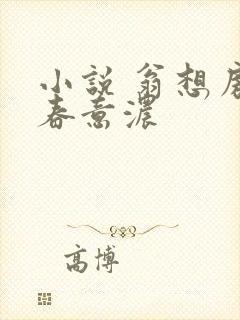 小説 翁想
春意濃
高博